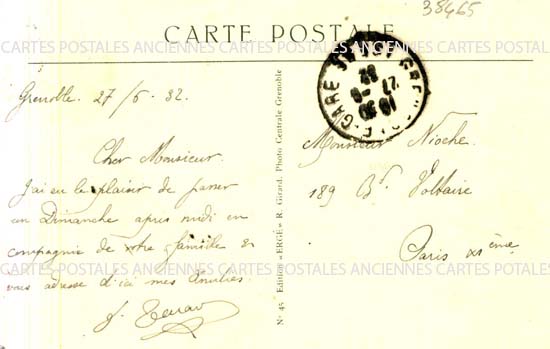 38465
CARTE POSTALE
CARTES POSTALES ANCIENNES CARTES POSTALES ANCIENNES CARTES POTALES
GRENOBLE-GARE
27-6
32
Grenoble. 27/6. 32.
Cher Monsieur.
J'ai eu le plaisir de passer
un Dimanche après midi en
compagnie de votre famille &
vous adresse d'ici mes
N° 45 Edition «ERGE» R. Girard. Photo Centrale Grenoble
Monsieur Nioche.
189 Bd. Voltaire
Paris XIème
CARTES POSTALES ANCIENNES CARTES POSTALES ANCIENNES CARTES POTALES